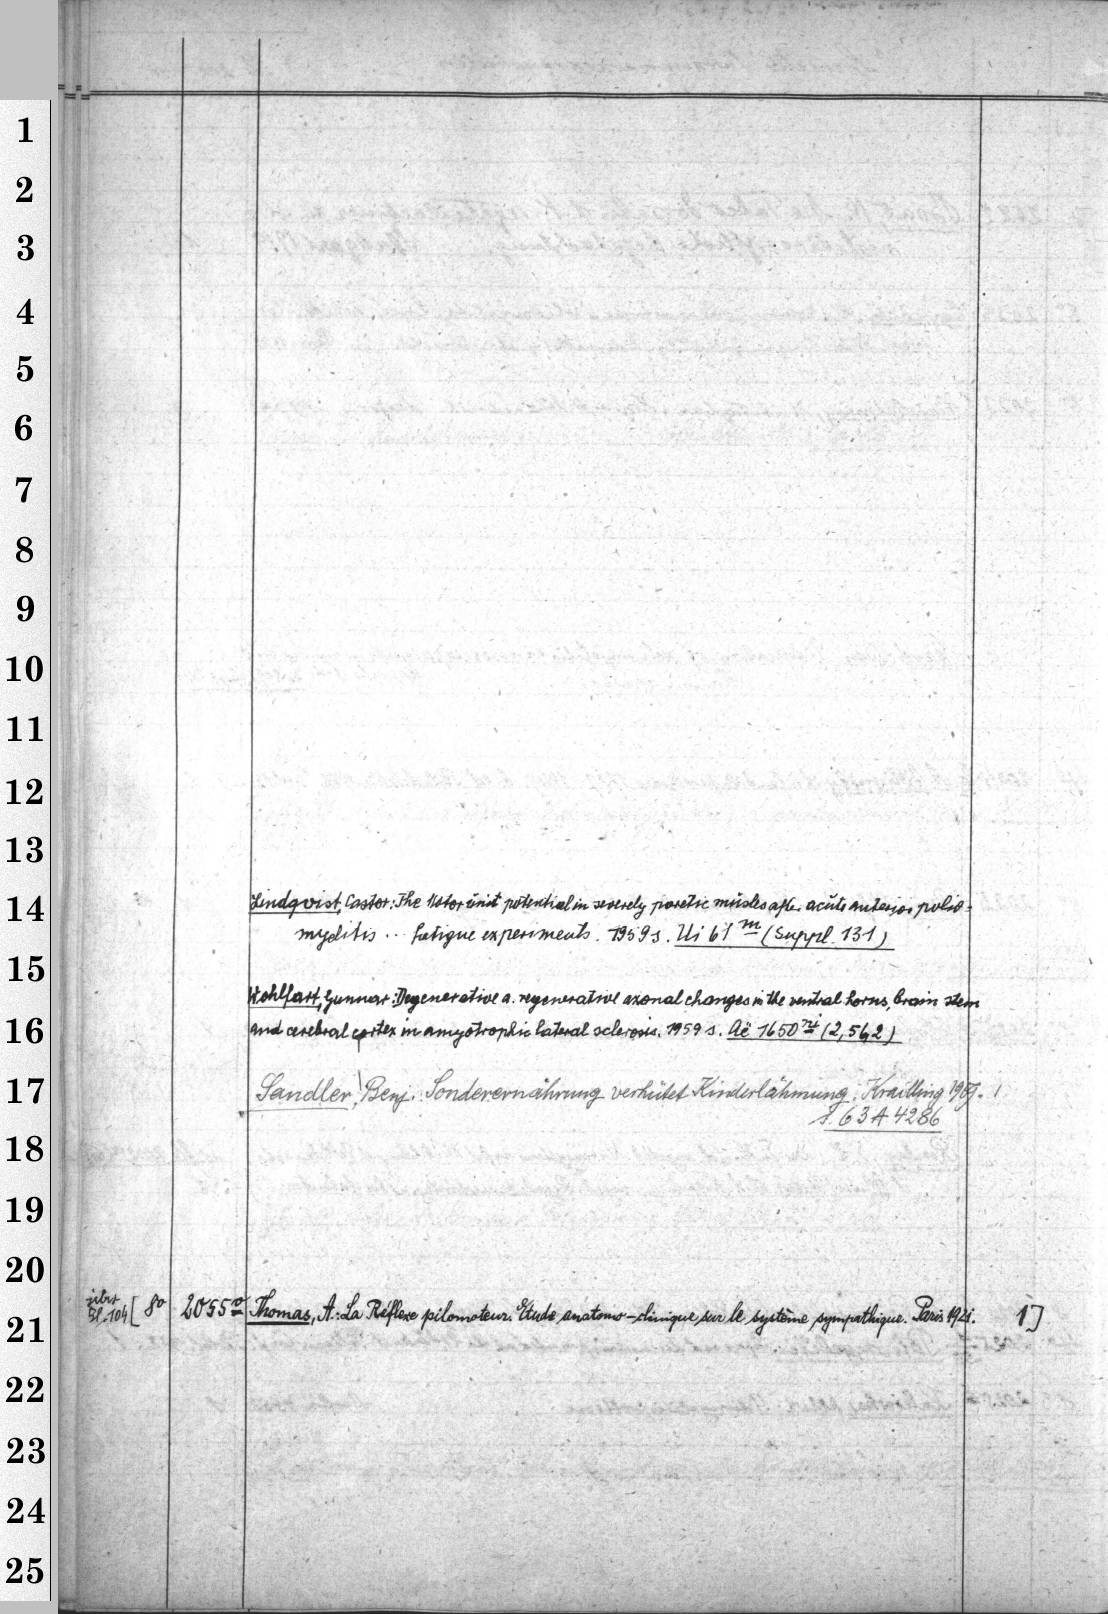 1
2
3
4
5
6
7
8
9
10
11
12
13
14
15
16
17
18
19
20
21
22
23
24
25
Lindqvist, Castor: The Motor unit potential in severely paretic muscles after acute anterior polio=
myelitis .. fatigue experiments. 1959 s. Ui 61 m (Suppl. 131)
Wohlfart, Gunnar: Degenerative a. regenerative axonal changes in the ventral horns, brain stem
and cerebral cortex in amyotrophic lateral sclerosis. 1959 s. Ac 1650 ni (2,56,2)
Sandler, Benj. Sonderernährung verhütet Kinderlähmung. Krailling 19 1
s. 63 A 4286
jetzt
Bl. 104 [ 80 2055 Thomas, A.: La Réflexe pilomoteur. Etude anatomo-clinique sur le système sympathique. Paris 1921. 1]